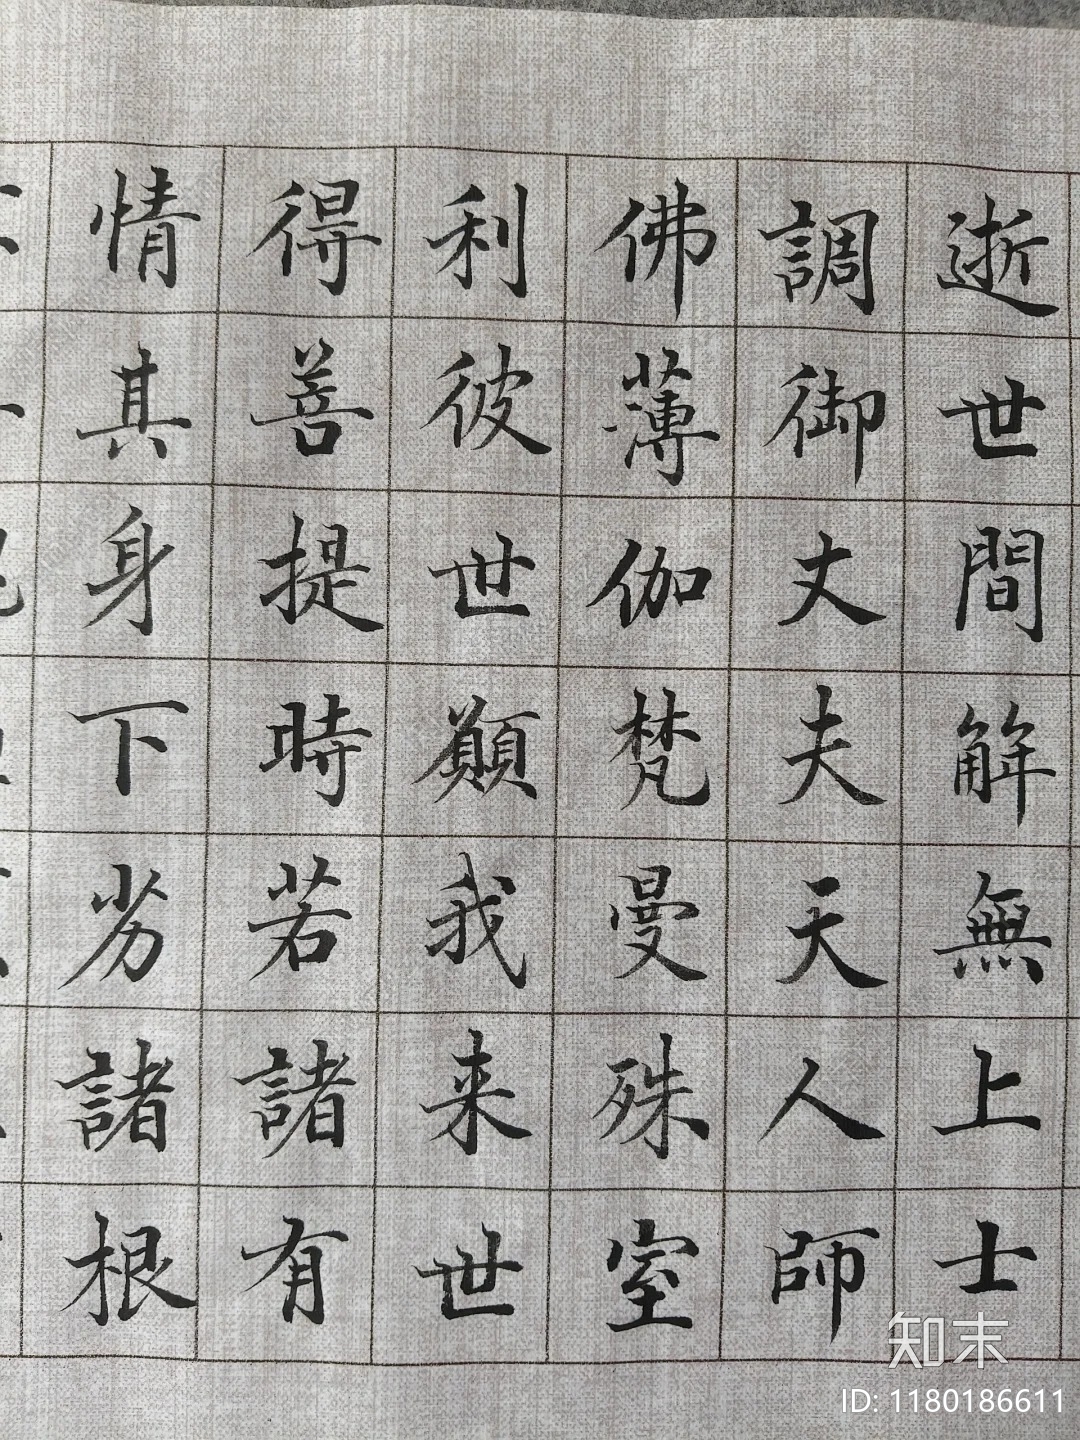 逝世間解無上士
調御丈夫天人師
佛薄伽梵曼殊室
利彼世願我来世
得善提時若諸有
情其身下劣諸根
知末
ID: 1180186611